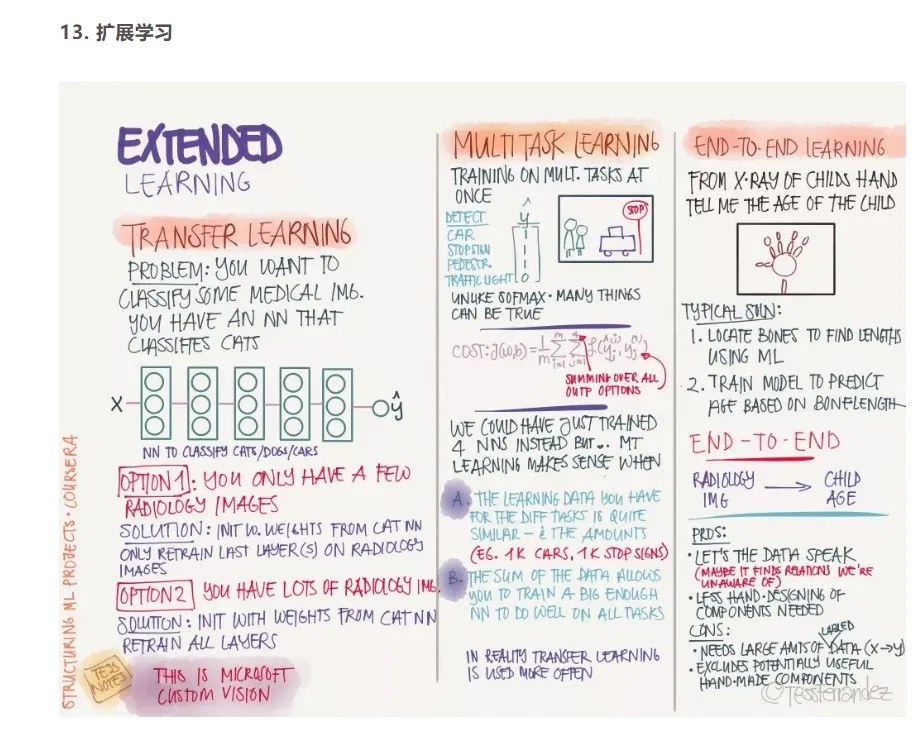 13. 扩展学习
EXTENDED
LEARNING
TRANSFER LEARNING
PROBLEM: YOU WANT TO
CLASSIFY SOME MEDICAL IMG.
YOU HAVE AN NN THAT
CLASSIFIES CATS
X
ŷ
NN TO CLASSIFY CATS/DOGS/CARS
OPTION 1: YOU ONLY HAVE A FEW
RADIOLOGY IMAGES
SOLUTION: INIT W. WEIGHTS FROM CAT NN
ONLY RETRAIN LAST LAYER(S) ON RADIOLOGY
IMAGES
OPTION 2 YOU HAVE LOTS OF RADIOLOGY IMG.
SOLUTION: INIT WITH WEIGHTS FROM CAT NN
RETRAIN ALL LAYERS
THIS IS MICROSOFT
CUSTOM VISION
TESS NOTES
STRUCTURING ML PROJECTS · COURSERA
MULTI TASK LEARNING
TRAINING ON MULT. TASKS AT
ONCE
DETECT
CAR
STOPSIGN
PEDESTR.
TRAFFIC LIGHT
ŷ
1
1
1
0
STOP
UNLIKE SOFMAX · MANY THINGS
CAN BE TRUE
COST: J(w,b) = 1/m Σ i=1 m Σ j=1 4 L(ŷj(i), yj(i))
SUMMING OVER ALL
OUTP OPTIONS
WE COULD HAVE JUST TRAINED
4 NNS INSTEAD BUT... MT
LEARNING MAKES SENSE WHEN
A. THE LEARNING DATA YOU HAVE
FOR THE DIFF TASKS IS QUITE
SIMILAR - & THE AMOUNTS
(EG. 1K CARS, 1K STOP SIGNS)
B. THE SUM OF THE DATA ALLOWS
YOU TO TRAIN A BIG ENOUGH
NN TO DO WELL ON ALL TASKS
IN REALITY TRANSFER LEARNING
IS USED MORE OFTEN
END-TO-END LEARNING
FROM X-RAY OF CHILDS HAND
TELL ME THE AGE OF THE CHILD
TYPICAL SOLN:
1. LOCATE BONES TO FIND LENGTHS
USING ML
2. TRAIN MODEL TO PREDICT
AGE BASED ON BONELENGTH
END-TO-END
RADIOLOGY → CHILD
IMG AGE
PROS:
· LET'S THE DATA SPEAK
(MAYBE IT FINDS RELATIONS WE'RE
UNAWARE OF)
· LESS HAND-DESIGNING OF
COMPONENTS NEEDED
CONS:
LABLED
· NEEDS LARGE AMTS OF DATA (X→Y)
· EXCLUDES POTENTIALLY USEFUL
HAND-MADE COMPONENTS
@Tessferrandez